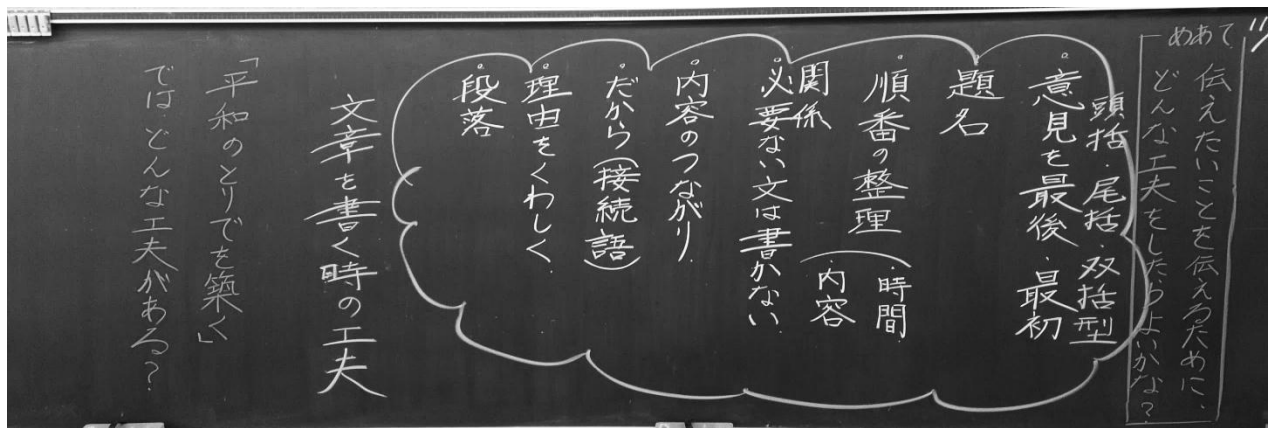 めあて
伝えたいことを伝えるために、
どんな工夫をしたらよいかな？
頭括・尾括・双括型
・意見を最後、最初
・題名
・順番の整理（・時間
・内容
関係
・必要ない文は書かない
・内容のつながり
・だから（接続語）
・理由をくわしく
・段落
文章を書く時の工夫
「平和のとりでを築く」
では、どんな工夫がある？